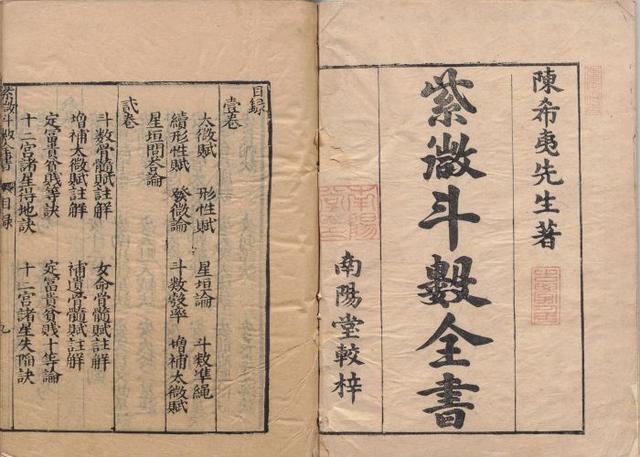 陳希夷先生著
紫微斗數全書
南陽堂較梓
目錄
壹卷
太微賦 形性賦 星垣論 斗数準繩
續形性賦 發微論 斗数彀率 增補太微賦
星垣問答論
貳卷
斗数骨髓賦註解 女命骨髓賦註解
增補太微賦註解 補遺骨髓賦註解
定富貴貧賤等訣 定富貴貧賤十等論
十二宮諸星得地訣 十二宮諸星失陷訣
紫微斗数全書 目錄